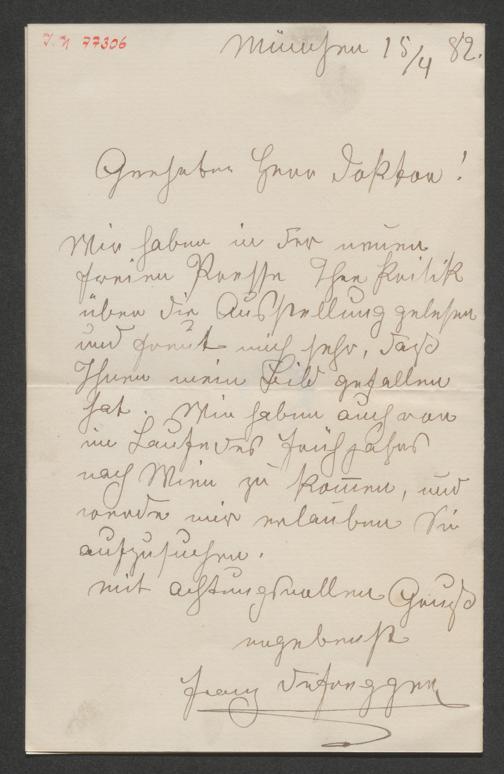 I.N 77306
München 15/4 82.
Geehrter Herr Doktor!
Wir haben in der neuen
freien Presse Ihre Kritik
über die Ausstellung gelesen
und freut mich sehr, daß
Ihnen mein Bild gefallen
hat. Wir haben auch vor
im Laufe des Frühjahrs
nach Wien zu kom̅en, und
werde mir erlauben Sie
aufzusuchen.
mit achtungsvollen Gruß
ergebenst
Franz Defregger